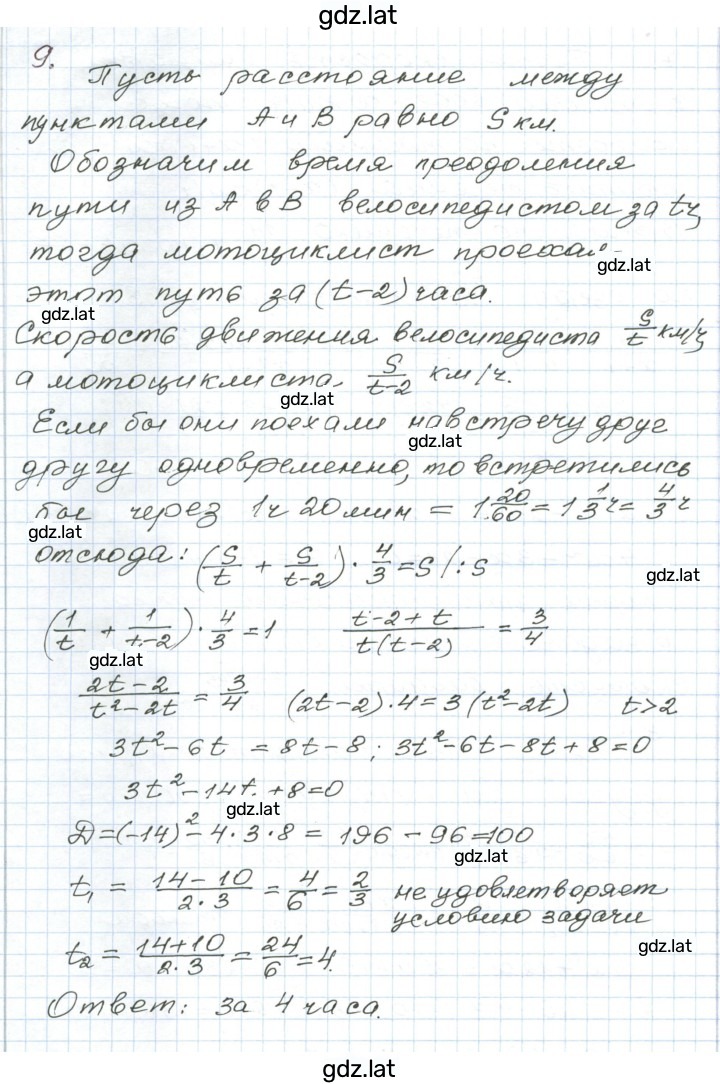 gdz.lat
9.
Пусть расстояние между
пунктами А и В равно S км.
Обозначим время преодоления
пути из А в В велосипедистом за tч,
тогда мотоциклист проехал
gdz.lat
этот путь за (t-2) часа.
gdz.lat
Скорость движения велосипедиста S/t км/ч,
а мотоциклиста. S/(t-2) км/ч.
gdz.lat
Если бы они поехали навстречу друг
gdz.lat
другу одновременно, то встретились
бы через 1ч 20мин = 1 20/60 = 1 1/3 ч = 4/3 ч
gdz.lat
отсюда: (S/t + S/(t-2)) · 4/3 = S /: S
gdz.lat
(1/t + 1/(t-2)) · 4/3 = 1 (t-2+t)/(t(t-2)) = 3/4
gdz.lat
(2t-2)/(t²-2t) = 3/4 (2t-2)·4 = 3(t²-2t) t>2
3t²-6t = 8t-8; 3t²-6t-8t+8=0
3t²-14t+8=0
gdz.lat
D=(-14)²-4·3·8 = 196-96=100
gdz.lat
t₁ = (14-10)/(2·3) = 4/6 = 2/3 не удовлетворяет
условию задачи
t₂ = (14+10)/(2·3) = 24/6 = 4.
gdz.lat
Ответ: за 4 часа.
gdz.lat